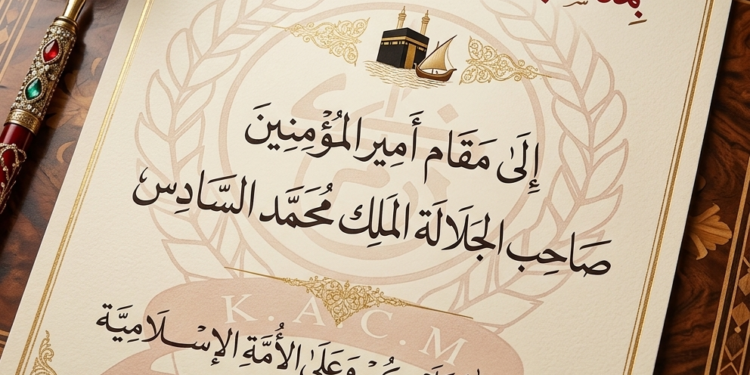 إِلَىٰ مَقَام أَمِير المُؤْمِنِينَ
صَاحِب الجَلَالَة المَلِك مُحَمَّد السَّادِس
K.A.C.M
وَعَلَىٰ الأُمَّةِ الإِسْلَامِيَّة